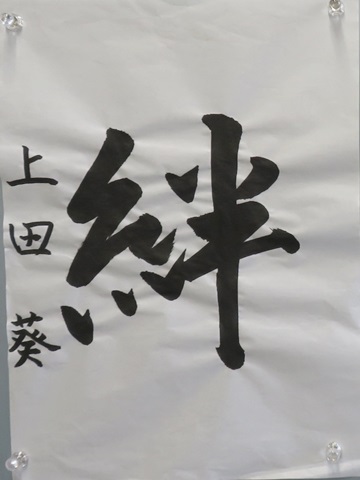 絆
上田 葵